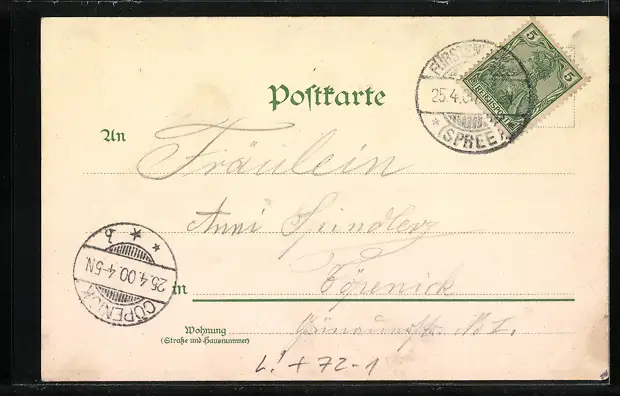 Postkarte
FÜRSTEN
25.4.0
* (SPREE)
5
5
REICHSPOST
An
Fräulein
Anni Spindler
in Cöpenick
CÖPENICK
25.4.00.4-5N
* * b
Wohnung
(Straße und Hausnummer)
L! + 72-1